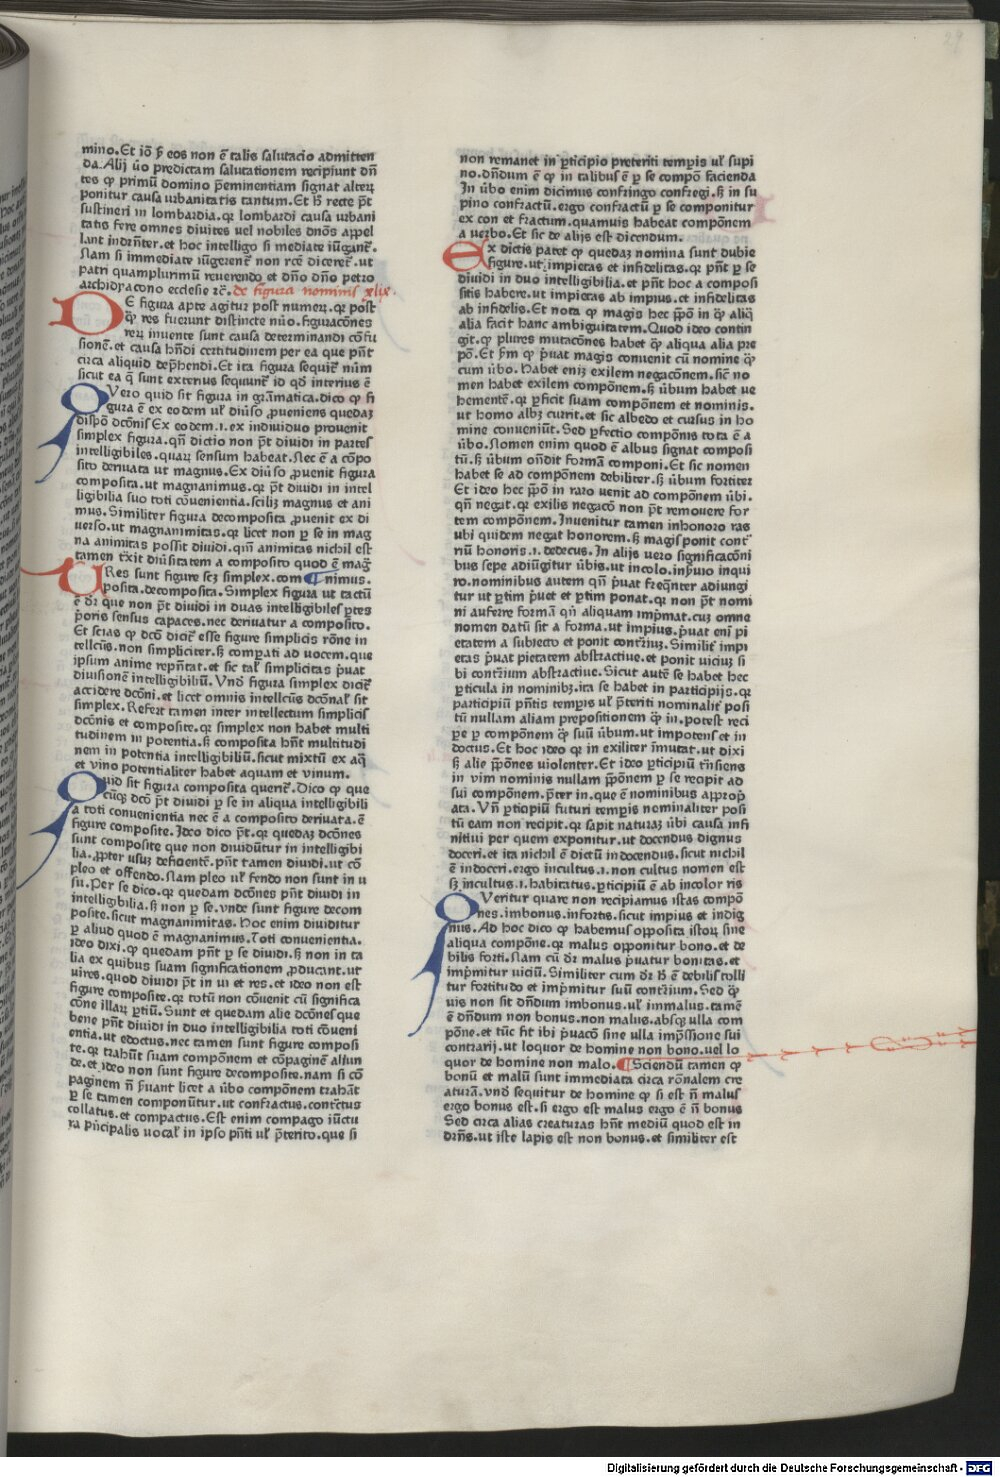 29
mino.Et iō ẜ eos non ē talis salutacio admitten
da.Alij ůo predictam salutationem recipiunt dn̄
tes ꝙ primū domino p̄eminentiam signat alterꝝ
ponitur causa urbanitatis tantum.Et lꝫ recte pn̄t
sustineri in lombardia.qꝛ lombardi causa urbani
tatis fere omnes diuites uel nobiles dnōs appel
lant indrn̄ter.et hoc intelligo si mediate iūganꝉ.
Nam si immediate iūgerenꝉ non rcē dicereꝉ.ut
patri quamplurimū reuerendo et dn̄o dn̄o petro
archidyacono ecclesie rē. de figura nominis xlix.
DE figura apte agitur post numerꝝ.qꝛ post
ꝙ̄ res fuerunt distincte nūo.figuracōnes
rerꝝ inuente sunt causa determinandi cōfu
sionē.et causa hn̄di certitudinem per ea que pn̄t
circa aliquid dep̄hendi.Et ita figura sequiꝉ nūm
sicut ea q̄ sunt extenus sequunꝉ id qd̄ interius ē
QVero quid sit figura in grāmatica.dico ꝙ fi
gura ē ex eodem uł diūso ꝓueniens quedaꝫ
dispō dcōnis Ex eodem.i.ex indiuiduo prouenit
simplex figura.qn̄ dictio non pt̄ diuidi in partes
intelligibiles.quarꝝ sensum habeat.Nec ē a cōpo
sito deriuata ut magnus.Ex diūso ꝓuenit figura
composita.ut magnanimus.qꝛ pt̄ diuidi in intel
ligibilia suo toti cōuenientia.scilꝫ magnus et ani
mus.Similiter figura decomposita ꝓuenit ex di
uerso.ut magnanimitas.qꝛ licet non ꝑ se in mag
na animitas possit diuidi.qm̄ animitas nichil est
tamen tr̄xit diūsitatem a composito quod ē maḡ
TRes sunt figure scꝫ simplex.com ¶nimus.
posita.decomposita.Simplex figura ut tactū
ē dr̄ que non pt̄ diuidi in duas intelligibiles ꝑtes
p̄oris sensus capaces.nec deriuatur a composito.
Et scias ꝙ dcō diciꝉ esse figure simplicis rōne in
tellcūs.non simpliciter.sꝫ comꝑati ad uocem.que
ipsum anime repn̄tat.et sic tał simplicitas p̄uat
diuisionē intelligibiliū.Vnd̄ figura simplex diciꝉ
accidere dcōni.et licet omnis intellcūs dcōnał sit
simplex.Refert tamen inter intellectum simplicis
dcōnis et composite.qꝛ simplex non habet multi
tudinem in potentia.sꝫ composita hn̄t multitudi
nem in potentia intelligibiliū.sicut mixtū ex aq̄
et vino potentialiter habet aquam et vinum.
QVid sit figura composita queriꝉ.Dico ꝙ que
cūqꝫ dcō pt̄ diuidi ꝑ se in aliqua intelligibili
a toti conuenientia nec ē a composito deriuata.ē
figure composite.Ideo dico pt̄.qꝛ quedaꝫ dcōnes
sunt composite que non diuidūtur in intelligibi
lia.ꝓpter usuꝫ deficientē.pn̄t tamen diuidi.ut cō
pleo et offendo.Nam pleo uł fendo non sunt in u
su.Per se dico.qꝛ quedam dcōnes pn̄t diuidi in
intelligibilia.sꝫ non ꝑ se.vnde sunt figure decom
posite.sicut magnanimitas.Hoc enim diuiditur
ꝑ aliud quod ē magnanimus.Toti conuenientia.
ideo dixi.ꝙ quedam pn̄t ꝑ se diuidi.sꝫ non in ta
lia ex quibus suam significationem ꝓducant.ut
uires.quod diuidi pt̄ in ui et res.et ideo non est
figure composite.qꝛ totū non cōuenit cū significa
cōne illarꝝ ꝑtiū.Sunt et quedam alie dcōnes que
bene pn̄t diuidi in duo intelligibilia toti cōueni
entia.ut edoctus.nec tamen sunt figure composi
te.qꝛ trahūt suam componēm et cōpaginē aliun
de.et ideo non sunt figure decomposite.nam si cō
paginem n̄ p̄uant licet a ůbo componēm trahāt
ꝑ se tamen componūtur.ut confractus.contctus
collatus.et compactus.Est enim compago iūctu
ra pn̄cipalis uocał in ipso pn̄ti uł p̄terito.que si
non remanet in ꝑticipio preteriti temꝑis uł supi
no.dn̄dum ē ꝙ in talibus ē ꝑ se compō facienda
In ůbo enim dicimus confringo confregi.sꝫ in su
pino confractū.ergo confractū ꝑ se componitur
ex con et fractum.quamuis habeat componēm
a uerbo.Et sic de alijs est dicendum.
EX dictis patet ꝙ quedaꝫ nomina sunt dubie
figure.ut impietas et infidelitas.qꝛ pn̄t ꝑ se
diuidi in duo intelligibilia.et pn̄t hoc a composi
sitis habere.ut impietas ab impius.et infidelitas
ab infidelis.Et nota ꝙ magis hec p̄pō in ꝙ̄ aliq̄
alia facit hanc ambiguitatem.Quod ideo contin
git.qꝛ plures mutacōnes habet ꝙ̄ aliqua alia pre
pō.Et p̄m ꝙ p̄uat magis conuenit cū nomine ꝙ̄
cum ůbo.Habet eniꝫ exilem negacōnem.sic̄ no
men habet exilem componēm.sꝫ ůbum habet ue
hementē.qꝛ ꝑficit suam componēm et nominis.
ut homo albꝫ currit.et sic albedo et cursus in ho
mine conueniūt.Sed ꝑfectio componīs tota ē a
ůbo.Nomen enim quod ē albus signat composi
tū.sꝫ ůbum on̄dit formā componi.Et sic nomen
habet se ad componēm debiliter.sꝫ ůbum fortiter
Et ideo hec p̄pō in raro uenit ad componēm ůbi.
qn̄ negat.qꝛ exilis negacō non pt̄ remouere for
tem componēm.Inuenitur tamen inhonoro ras
ubi quidem negat honorem.sꝫ magis ponit cont̄
riū honoris.i.dedecus.In alijs uero significacōni
bus sepe adiūgitur ůbis.ut incolo.inp̄mo inqui
ro.nominibus autem qn̄ p̄uat freqn̄ter adiungi
tur ut ꝑtim p̄uet et ꝑtim ponat.qꝛ non pt̄ nomi
ni auferre formā qn̄ aliquam imp̄mat.cuꝫ omne
nomen datū sit a forma.ut impius.p̄uat eni̅ pi
etatem a subiecto et ponit contr̄iuꝫ.Similiꝉ impi
etas p̄uat pietatem abstractiue.et ponit uiciuꝫ si
bi contr̄ium abstractiue.Sicut autē se habet hec
ꝑticula in nominibꝫ.ita se habet in participijs.qꝛ
participiū pn̄tis temꝑis uł p̄teriti nominaliꝉ posi
tū nullam aliam prepositionem ꝙ̄ in.potest reci
ꝑe ꝑ componēm ꝙ̄ suū ůbum.ut impotens et in
doctus.Et hoc ideo qꝛ in exiliter īmutat.ut dixi
sꝫ alie p̄pōnes uiolenter.Et ideo ꝑticipiū trn̄siens
in vim nominis nullam p̄pōnem ꝑ se recipit ad
sui componēm.p̄ter in.que ē nominibus appropͥ
ata.Vn̄ ꝑticipiū futuri temꝑis nominaliter posi
tū eam non recipit.qꝛ sapit naturaꝫ ůbi causa infi
nitiui per quem exponitur.ut docendus dignus
doceri.et ita nichil ē dictū indocendus.sicut nichil
ē indoceri.ergo incultus.i.non cultus nomen est
sꝫ incultus.i.habitatus.ꝑticipiū ē ab incolor ris
QVeritur quare non recipiamus istas compō
nes.imbonus.infortis.sicut impius et indig
nus.Ad hoc dico ꝙ habemus opposita istorꝝ sine
aliqua compōne.qꝛ malus opponitur bono.et de
bilis forti.Nam cū dr̄ malus p̄uatur bonitas.et
imp̄mitur uiciū.Similiter cum dr̄ lꝫ ē debilis tolli
tur fortitudo et imp̄mitur suū contr̄ium.Sed ꝙ̄
uis non sit dn̄dum imbonus.uł immalus.tamē
ē dn̄dum non bonus.non malus.absqꝫ ulla com
pōne.et tūc fit ibi p̄uacō sine ulla imp̄ssione sui
contrarij.ut loquor de homine non bono.uel lo
quor de homine non malo.¶Sciendū tamen ꝙ
bonū et malū sunt immediata circa rōnalem cre
aturā.vnd̄ sequitur de homine ꝙ si est n̄ malus
ergo bonus est.si ergo est malus ergo ē n̄ bonus
Sed circa alias creaturas hn̄t mediū quod est in
drn̄s.ut iste lapis est non bonus.et similiter est
Digitalisierung gefördert durch die Deutsche Forschungsgemeinschaft - DFG